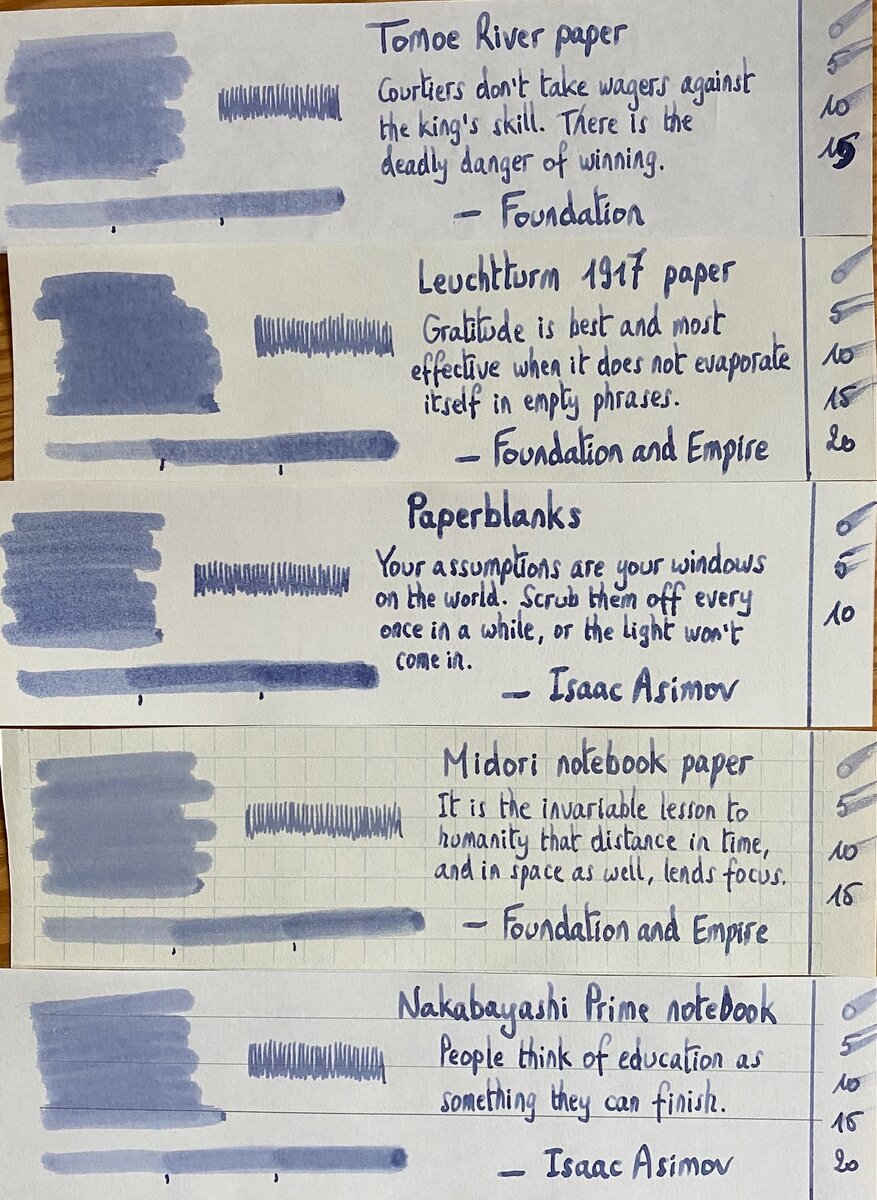 Tomoe River paper
Courtiers don't take wagers against
the king's skill. There is the
deadly danger of winning.
— Foundation
0
5
10
15
Leuchtturm 1917 paper
Gratitude is best and most
effective when it does not evaporate
itself in empty phrases.
— Foundation and Empire
0
5
10
15
20
Paperblanks
Your assumptions are your windows
on the world. Scrub them off every
once in a while, or the light won't
come in.
— Isaac Asimov
0
5
10
Midori notebook paper
It is the invariable lesson to
humanity that distance in time,
and in space as well, lends focus.
— Foundation and Empire
0
5
10
15
Nakabayashi Prime notebook
People think of education as
something they can finish.
— Isaac Asimov
0
5
10
15
20